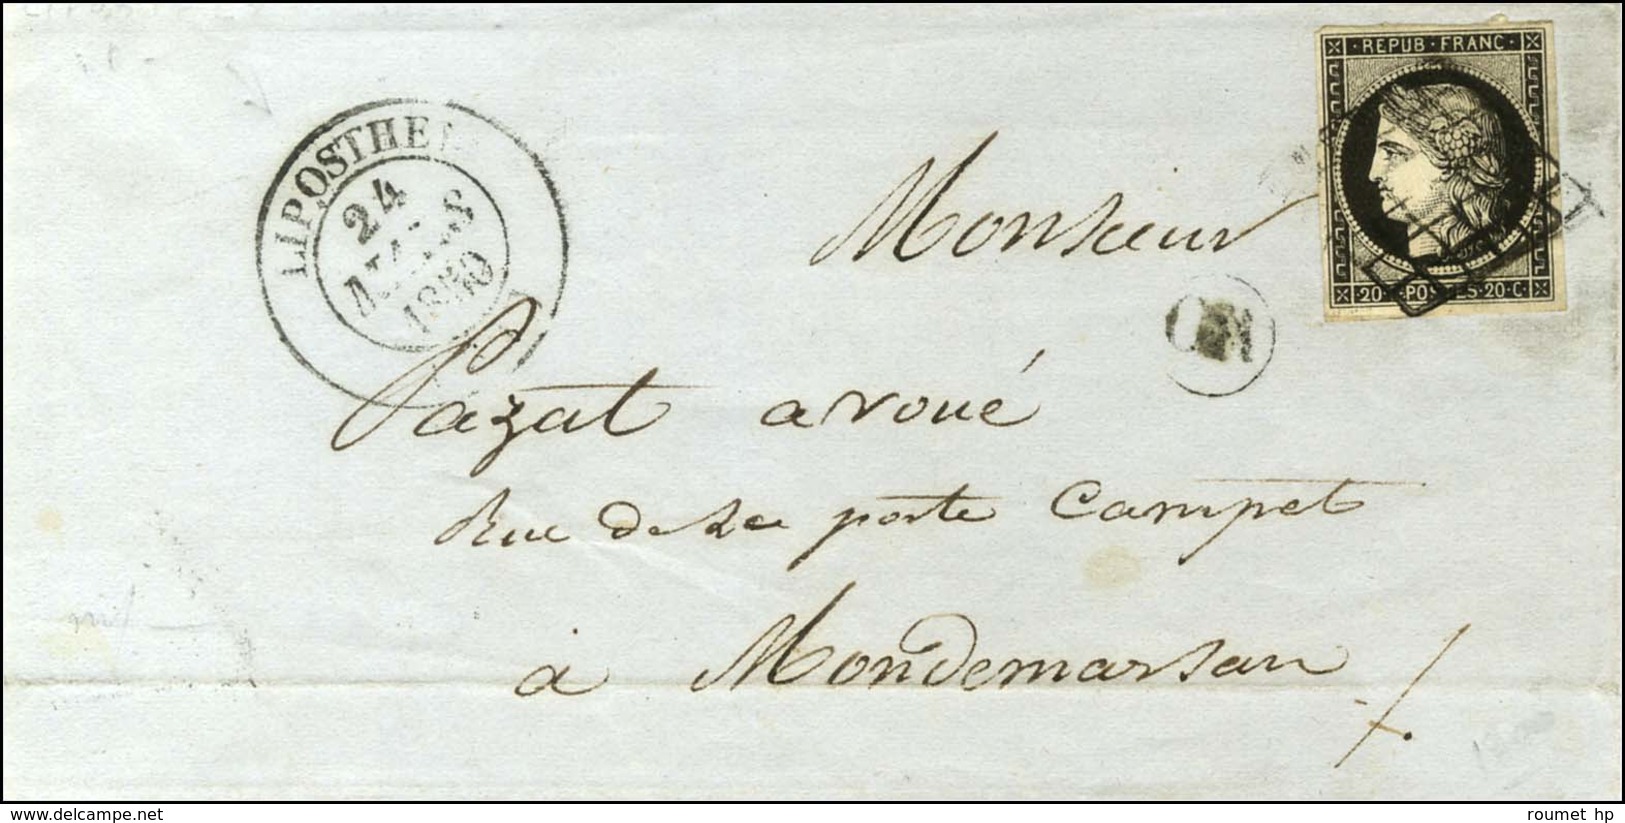 REPUB · FRANC ·
20 · POSTES · 20 · C
LIPOSTHE
24
MARS
1850
Monsieur
OR
Pazat avoué
Rue de La porte Campet
à Mondemarsan
roumet hp